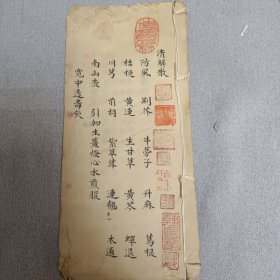 清解散
防風 荊芥 牛蒡子 升麻 葛根
桔梗 黃連 生甘草 黃芩 蟬退
川芎 前胡 紫草茸 連翹 木通
南山查 引加生薑燈心水煎服
寬中透毒飲